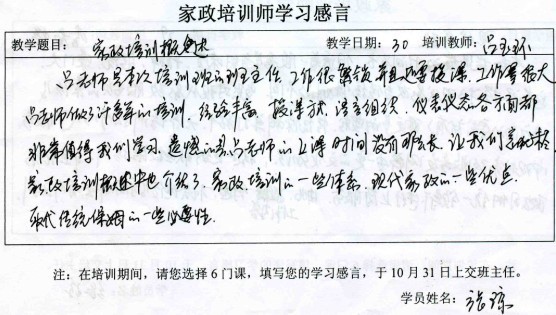 家政培训师学习感言
教学题目： 家政培训概述 教学日期：30 培训教师：吕玉环
吕老师是本次培训班的班主任，工作很繁锁并且还要授课，工作量很大
吕老师做了许多年的培训，经验丰富，授课方式，语言组织，仪表仪态各方面都
非常值得我们学习，遗憾的是吕老师的上课时间没有那么长，让我们
家政培训概述中也介绍了，家政培训的一些体系，现代家政的一些优点
取代传统保姆的一些必要性。
注：在培训期间，请您选择 6 门课，填写您的学习感言，于 10 月 31 日上交班主任。
学员姓名：张琼